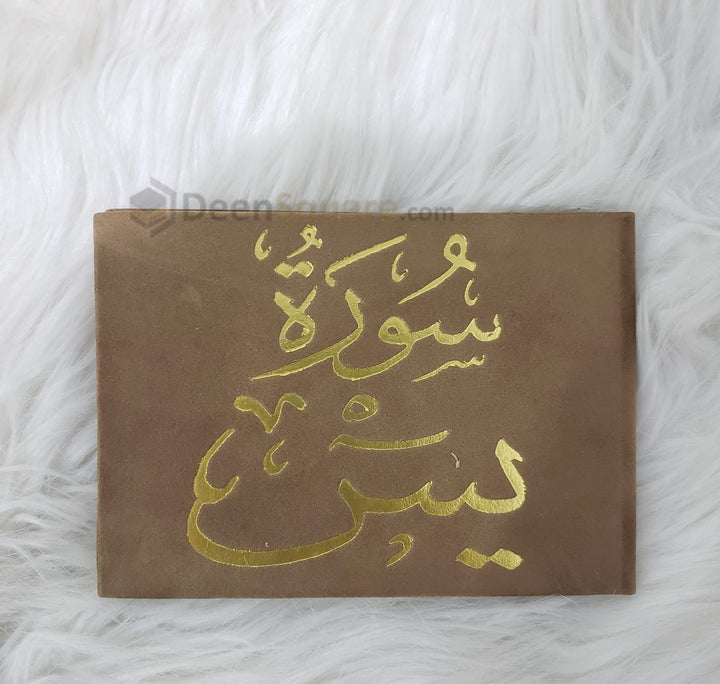 DeenSquare.com
سُورَةُ
يسٓ